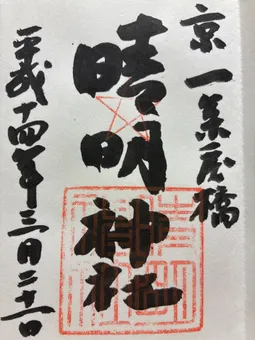 京一条戻橋
晴明神社
平成十四年三月二十一日